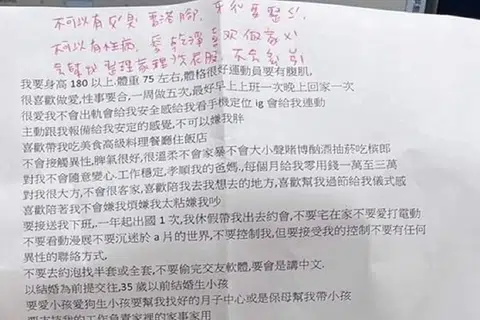 不可以有狐臭,香港腳,牙化要整齊
不可以有性病,愛乾淨喜歡做家事
會幫我整理家裡洗衣服,不會劈腿
我要身高180以上.體重75左右,體格很好運動員要有腹肌,
很喜歡做愛,性事要合,一周做五次,最好早上上班一次晚上回家一次
很愛我不會出軌會給我安全感給我看手機定位ig會給我連動
主動跟我報備給我安定的感覺,不可以嫌我胖
喜歡帶我吃美食高級料理餐廳住飯店
不會接觸異性,脾氣很好,很溫柔不會家暴不會大小聲賭博酗酒抽菸吃檳郎
對我不會隨意變心.工作穩定,孝順我的爸媽.,每個月給我零用錢一萬至三萬
對我很大方,不會很客家,喜歡陪我去我想去的地方,喜歡幫我過節給我儀式感
喜歡陪著我不會嫌我煩嫌我太粘嫌我吵
要接送我下班,.一年起出國1次,我休假帶我出去約會,不要宅在家不要愛打電動
不要看動漫展不要沉迷於a片的世界,不要控制我,但要接受我的控制不要有任何
異性的聯絡方式,
不要去約泡找半套或全套,不要偷完交友軟體,要會是講中文.
以結婚為前提交往,35歲以前結婚生小孩
要愛小孩愛狗生小孩要幫我找好的月子中心或是保母幫我帶小孩
要支持我的工作負責家裡的家事家用